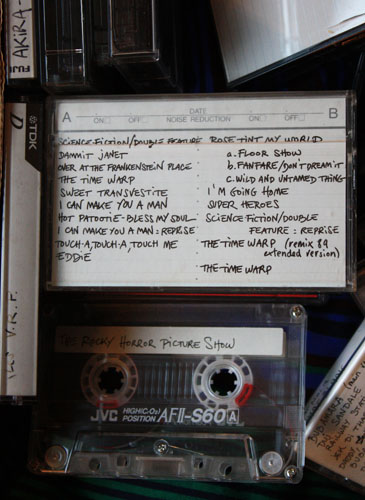 AKIRA
TDK
A
DATE
B
ON
OFF
NOISE REDUCTION
ON
OFF
SCIENCE FICTION/DOUBLE FEATURE
DAMMIT JANET
OVER AT THE FRANKENSTEIN PLACE
THE TIME WARP
SWEET TRANSVESTITE
I CAN MAKE YOU A MAN
HOT PATOOTIE-BLESS MY SOUL
I CAN MAKE YOU A MAN: REPRISE
TOUCH-A, TOUCH-A, TOUCH ME
EDDIE
ROSE TINT MY WORLD
a. FLOOR SHOW
b. FANFARE/DON'T DREAM IT
c. WILD AND UNTAMED THING
I'M GOING HOME
SUPER HEROES
SCIENCE FICTION/DOUBLE
FEATURE: REPRISE
THE TIME WARP (remix 89
extended version)
THE TIME WARP
THE ROCKY HORROR PICTURE SHOW
JVC HIGH(CrO2) POSITION AFII-S60 A